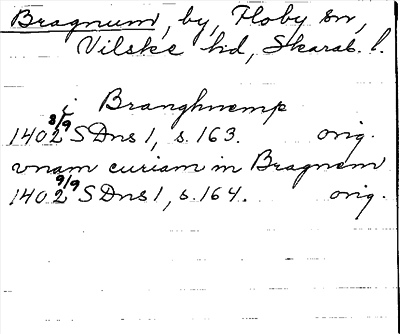 Bragnum, by, Floby sn,
Vilske hd, Skarab. l.
i Branghnemp
1402 8/9 SDns 1, s. 163. orig.
vnam curiam in Bragnem
1402 9/9 SDns 1, s. 164. orig.